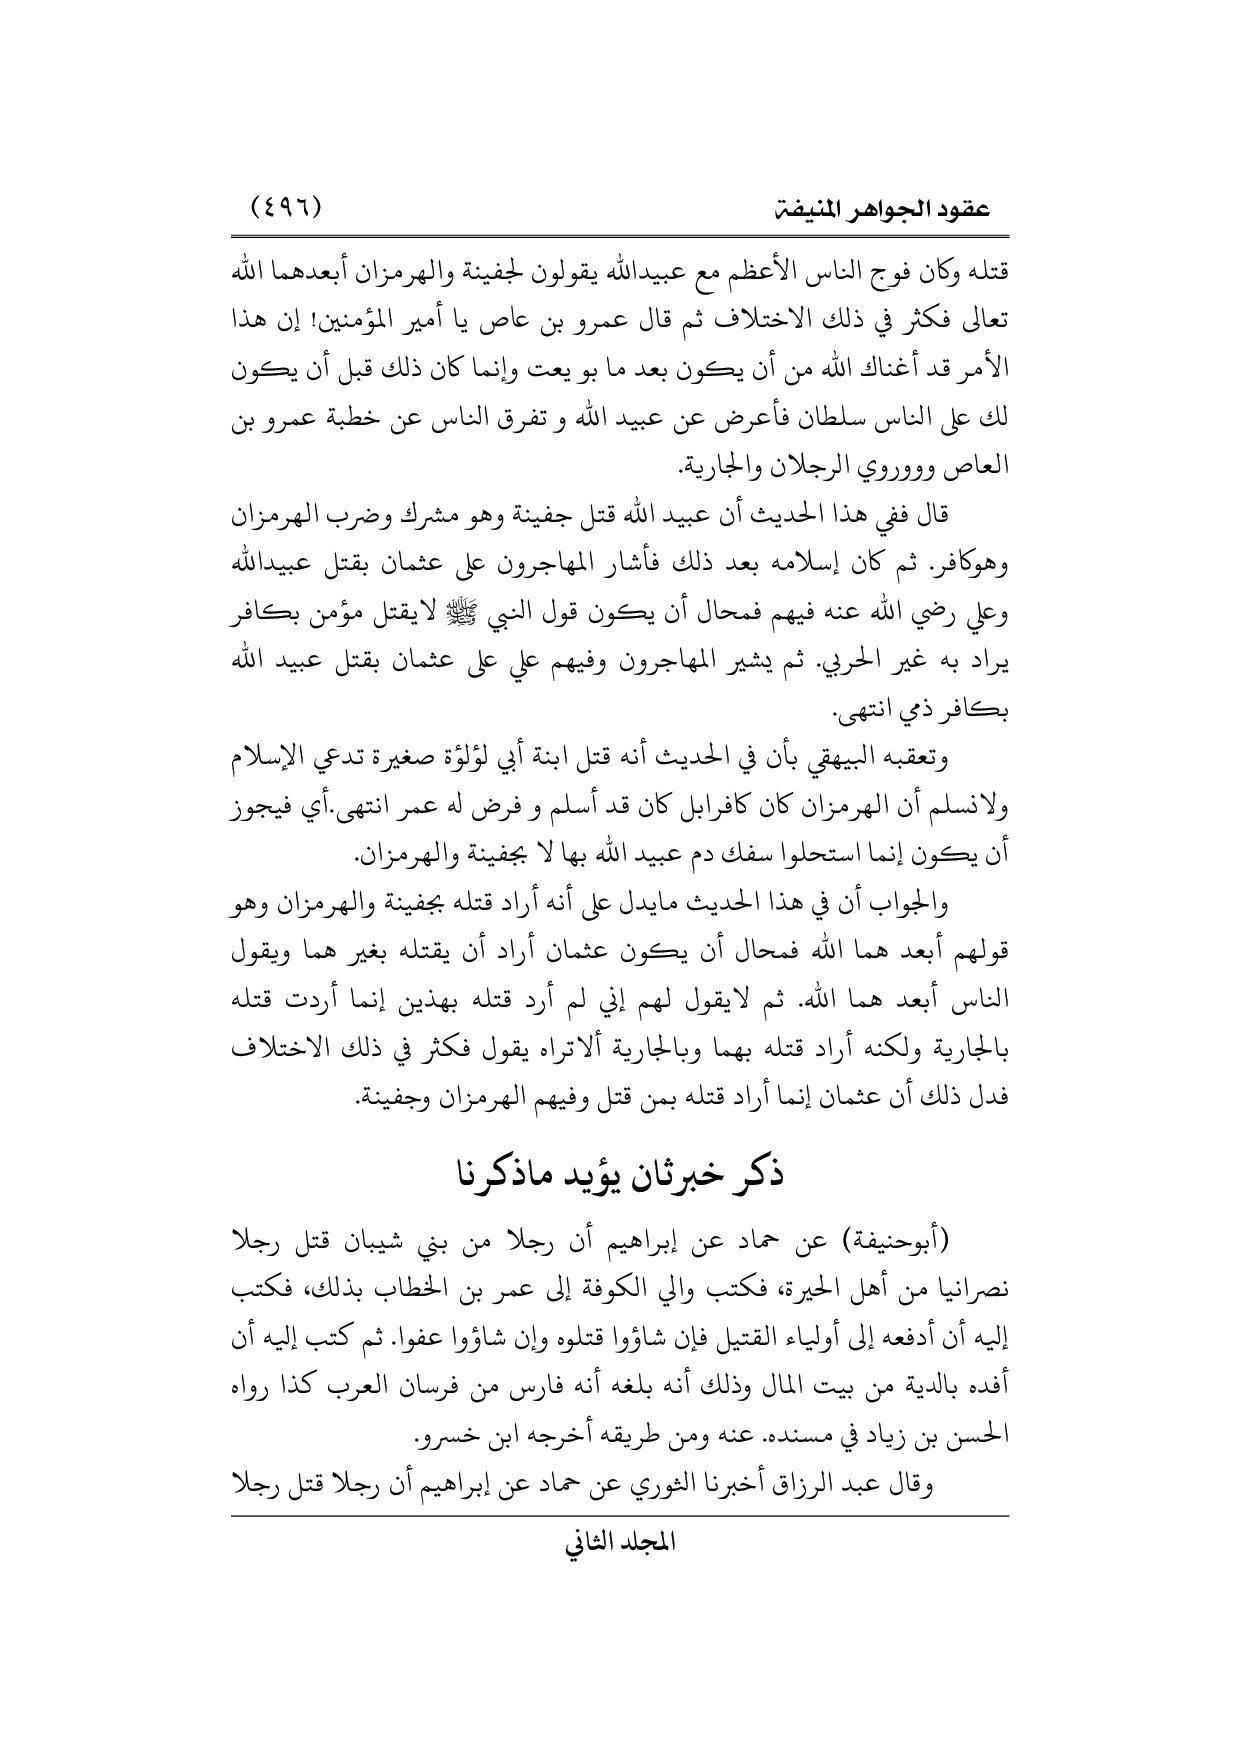 عقود الجواهر المنيفة (٤٩٦)
قتله وكان فوج الناس الأعظم مع عبيدالله يقولون لجفينة والهرمزان أبعدهما الله
تعالى فكثر في ذلك الاختلاف ثم قال عمرو بن عاص يا أمير المؤمنين! إن هذا
الأمر قد أغناك الله من أن يكون بعد ما بو يعت وإنما كان ذلك قبل أن يكون
لك على الناس سلطان فأعرض عن عبيد الله و تفرق الناس عن خطبة عمرو بن
العاص وووروي الرجلان والجارية.
قال ففي هذا الحديث أن عبيد الله قتل جفينة وهو مشرك وضرب الهرمزان
وهوكافر. ثم كان إسلامه بعد ذلك فأشار المهاجرون على عثمان بقتل عبيدالله
وعلي رضي الله عنه فيهم فمحال أن يكون قول النبي ﷺ لايقتل مؤمن بكافر
يراد به غير الحربي. ثم يشير المهاجرون وفيهم علي على عثمان بقتل عبيد الله
بكافر ذمي انتهى.
وتعقبه البيهقي بأن في الحديث أنه قتل ابنة أبي لؤلؤة صغيرة تدعي الإسلام
ولانسلم أن الهرمزان كان كافرابل كان قد أسلم و فرض له عمر انتهى.أي فيجوز
أن يكون إنما استحلوا سفك دم عبيد الله بها لا بجفينة والهرمزان.
والجواب أن في هذا الحديث مايدل على أنه أراد قتله بجفينة والهرمزان وهو
قولهم أبعد هما الله فمحال أن يكون عثمان أراد أن يقتله بغير هما ويقول
الناس أبعد هما الله. ثم لايقول لهم إني لم أرد قتله بهذين إنما أردت قتله
بالجارية ولكنه أراد قتله بهما وبالجارية ألاتراه يقول فكثر في ذلك الاختلاف
فدل ذلك أن عثمان إنما أراد قتله بمن قتل وفيهم الهرمزان وجفينة.
ذكر خبرثان يؤيد ماذكرنا
(أبوحنيفة) عن حماد عن إبراهيم أن رجلا من بني شيبان قتل رجلا
نصرانيا من أهل الحيرة، فكتب والي الكوفة إلى عمر بن الخطاب بذلك، فكتب
إليه أن أدفعه إلى أولياء القتيل فإن شاؤوا قتلوه وإن شاؤوا عفوا. ثم كتب إليه أن
أفده بالدية من بيت المال وذلك أنه بلغه أنه فارس من فرسان العرب كذا رواه
الحسن بن زياد في مسنده. عنه ومن طريقه أخرجه ابن خسرو.
وقال عبد الرزاق أخبرنا الثوري عن حماد عن إبراهيم أن رجلا قتل رجلا
المجلد الثاني